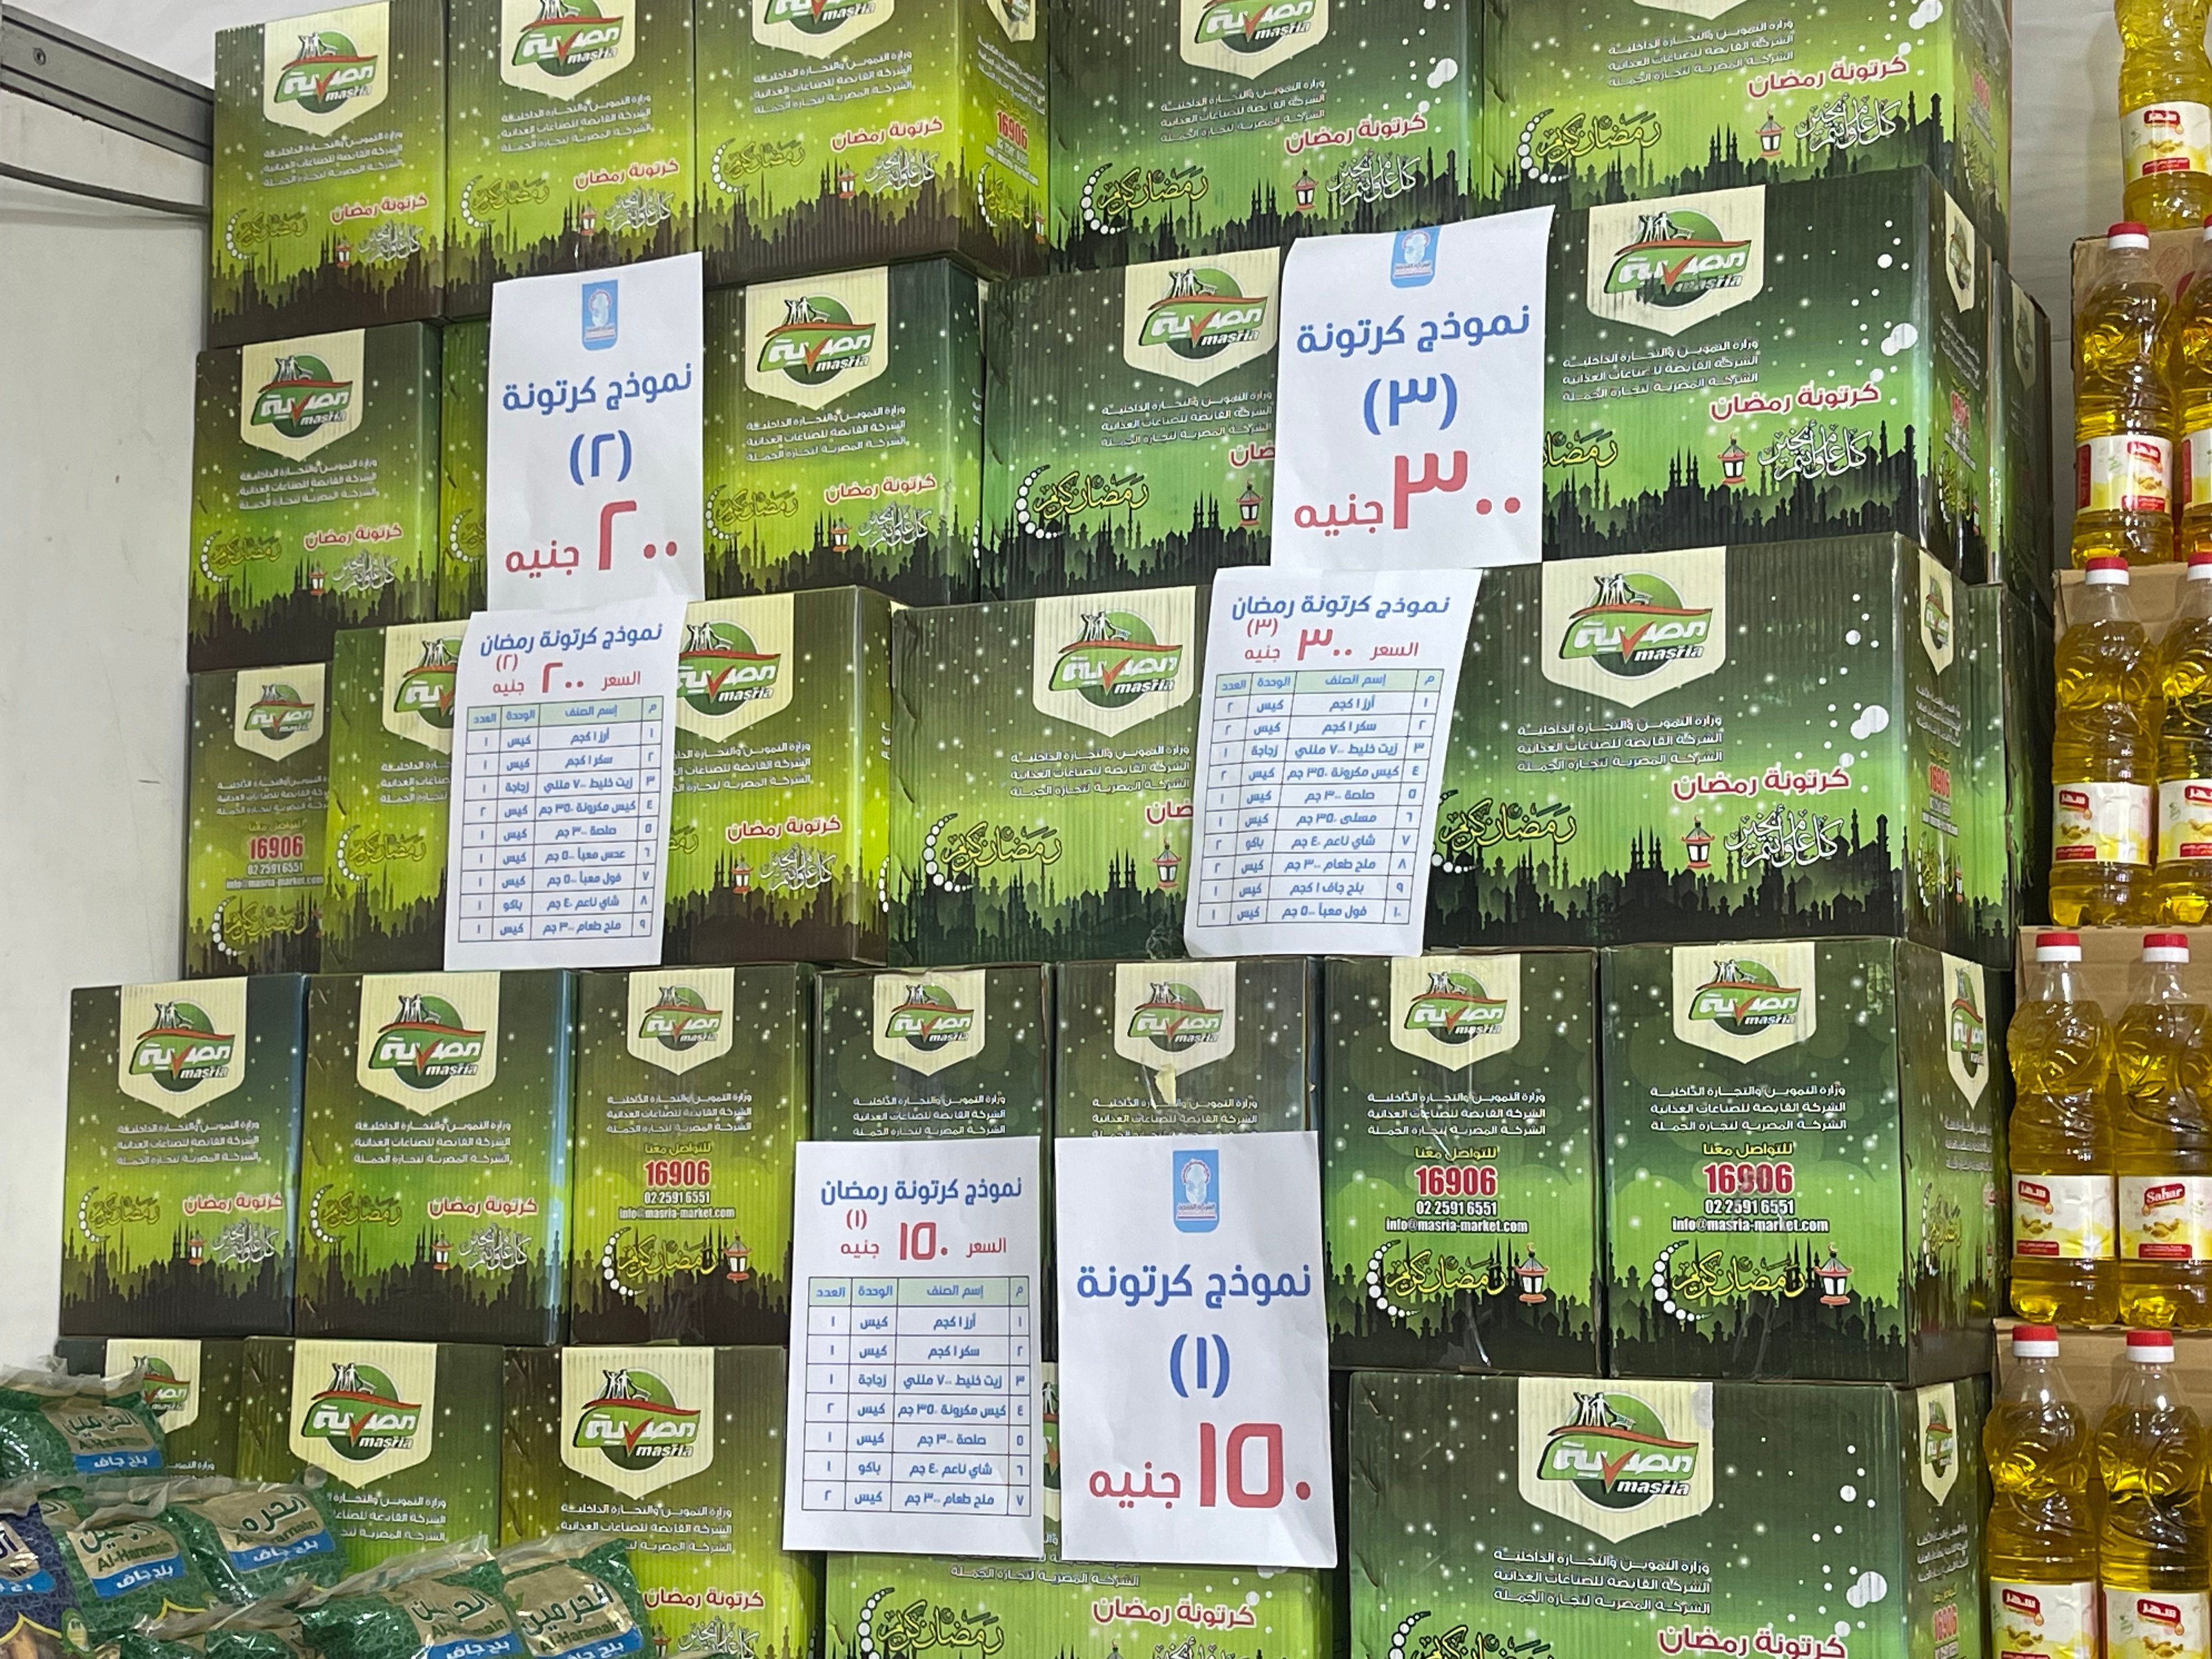 مصرية
masria
وزارة التموين والتجارة الداخلية
الشركة القابضة للصناعات الغذائية
الشركة المصرية لتجارة الجملة
كرتونة رمضان
رمضان كريم
كل عام وأنتم بخير
نموذج كرتونة
(٢)
٢٠٠ جنيه
نموذج كرتونة
(٣)
٣٠٠ جنيه
نموذج كرتونة رمضان
(٢)
السعر ٢٠٠ جنيه
م إسم الصنف الوحدة العدد
١ أرز ١ كجم كيس ١
٢ سكر ١ كجم كيس ١
٣ زيت خليط ٧٠٠ مللي زجاجة ١
٤ كيس مكرونة ٣٥٠ جم كيس ٢
٥ صلصة ٣٠٠ جم كيس ١
٦ عدس معبأ ٥٠٠ جم كيس ١
٧ فول معبأ ٥٠٠ جم كيس ١
٨ شاي ناعم ٤٠ جم باكو ١
٩ ملح طعام ٣٠٠ جم كيس ١
نموذج كرتونة رمضان
(٣)
السعر ٣٠٠ جنيه
م إسم الصنف الوحدة العدد
١ أرز ١ كجم كيس ٢
٢ سكر ١ كجم كيس ٢
٣ زيت خليط ٧٠٠ مللي زجاجة ١
٤ كيس مكرونة ٣٥٠ جم كيس ٢
٥ صلصة ٣٠٠ جم كيس ١
٦ مسلى ٣٥٠ جم كيس ١
٧ شاي ناعم ٤٠ جم باكو ٢
٨ ملح طعام ٣٠٠ جم كيس ٢
٩ بلح جاف ١ كجم كيس ١
١٠ فول معبأ ٥٠٠ جم كيس ١
للتواصل معنا
16906
02 2591 6551
info@masria-market.com
رمضان كريم
نموذج كرتونة رمضان
(١)
السعر ١٥٠ جنيه
م إسم الصنف الوحدة العدد
١ أرز ١ كجم كيس ١
٢ سكر ١ كجم كيس ١
٣ زيت خليط ٧٠٠ مللي زجاجة ١
٤ كيس مكرونة ٣٥٠ جم كيس ٢
٥ صلصة ٣٠٠ جم كيس ١
٦ شاي ناعم ٤٠ جم باكو ١
٧ ملح طعام ٣٠٠ جم كيس ٢
نموذج كرتونة
(١)
١٥٠ جنيه
الحرمين
Al-Haramain
بلح جاف
سهر
Sahar